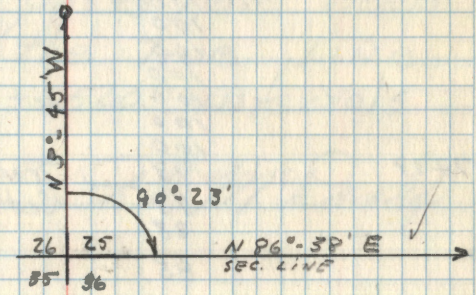 N 3°-45' W
90°-23'
26 25
N 86°-38' E
SEC. LINE
35 36